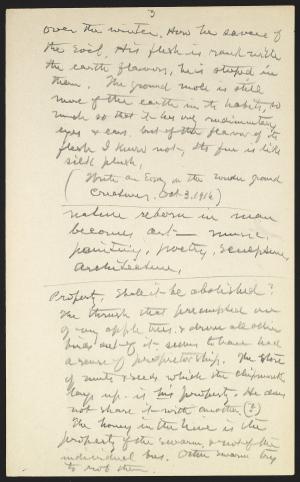 3
over the winter. How he savors of
the soil. His flesh is rank with
the earth flavors, he is steeped in
them. The ground mole is still
more of the earth in its habits, so
much so that it has only rudimentary
eyes & ears. but of the flavor of its
flesh I know not, Its fur is like
silk plush,
(Write an Essay on the under ground
creatures, Oct 3, 1916)
nature reborn in man
becomes art — music,
painting, poetry, sculpture,
architecture,
Property, Shall it be abolished?
The thrush that preempted one
of my apple trees & drove all other
birds out of it seems to have had
a sense of proprietorship. The store
of nuts & seeds which the chipmunk
lays up is his property. He does
not share it with another (?)
The honey in the hive is the
property of the swarm, & not of the
individual bees. Other swarms try
to rob them.